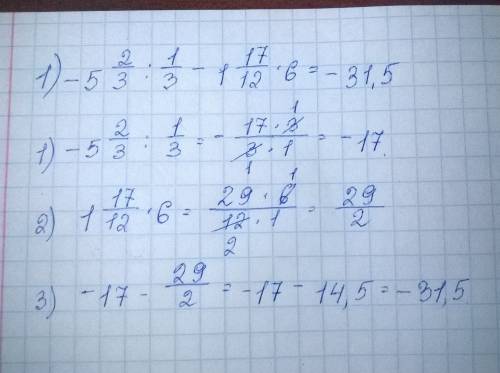 1) -5 2/3 : 1/3 - 1 17/12 · 6 = -31,5
1) -5 2/3 : 1/3 = - (17 · 3 1)/(3 1 · 1) = -17
2) 1 17/12 · 6 = (29 · 6 1)/(12 2 · 1) = 29/2
3) -17 - 29/2 = -17 - 14,5 = -31,5